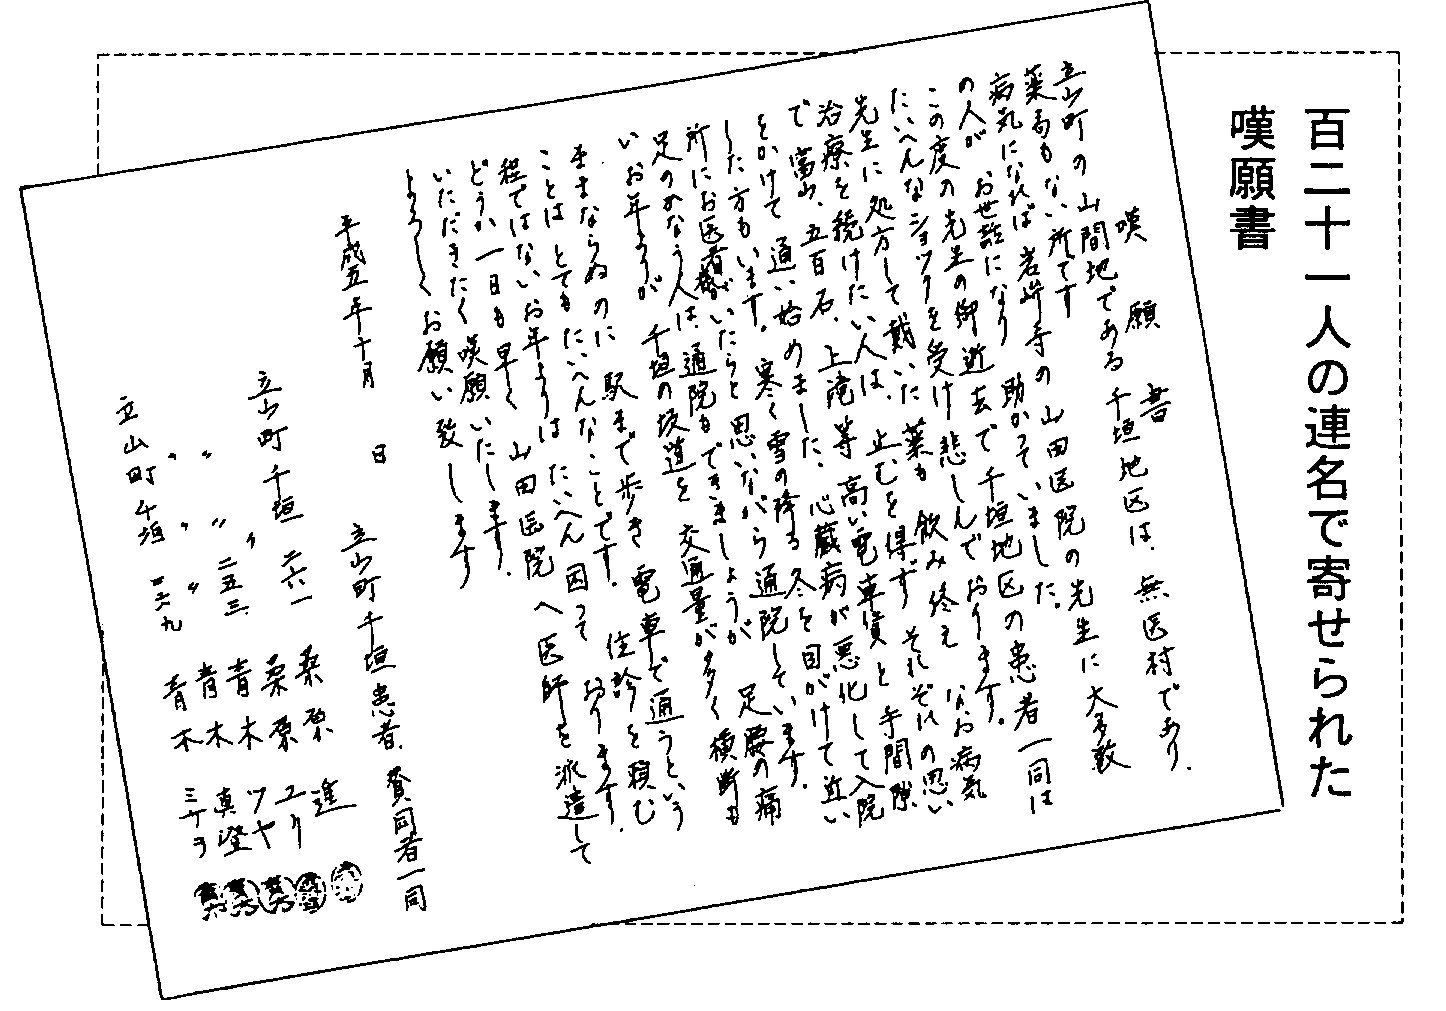 百二十一人の連名で寄せられた
嘆願書
嘆願書
立山町の山間地である千垣地区は、無医村であり、
薬局もない所です
病気になれば岩峅寺の山田医院の先生に大多数
の人がお世話になり助かっていました。
この度の先生の御逝去で千垣地区の患者一同は
たいへんなショックを受け悲しんでおります。なお病気
先生に処方して戴いた薬も飲み終えそれぞれの思い
治療を続けたい人は、止むを得ず高い電車賃と手間隙
で富山、五百石、上滝等心臓病が悪化して入院
をかけて通い始めました、冬を目がけて近い
した方もいます。寒く雪の降る
所にお医者様がいたらと思いながら通院しています。
足のかなう人は通院もできましょうが足腰の痛
いお年よりが千垣の坂道を交通量が多く横断も
ままならぬのに駅まで歩き電車で通うという
ことはとてもたいへんなことです。往診を頼む
程ではないお年よりはたいへん困っております。
どうか一日も早く山田医院へ医師を派遣して
いただきたく嘆願いたします。
よろしくお願い致します
平成五年十月 日
立山町千垣患者、賛同者一同
立山町千垣 二六一 桑原 進
〃 〃 〃 桑原 ユリ
〃 〃 二五三 青木 ツヤ
〃 青木 真澄
立山町千垣 青木 ミヲ